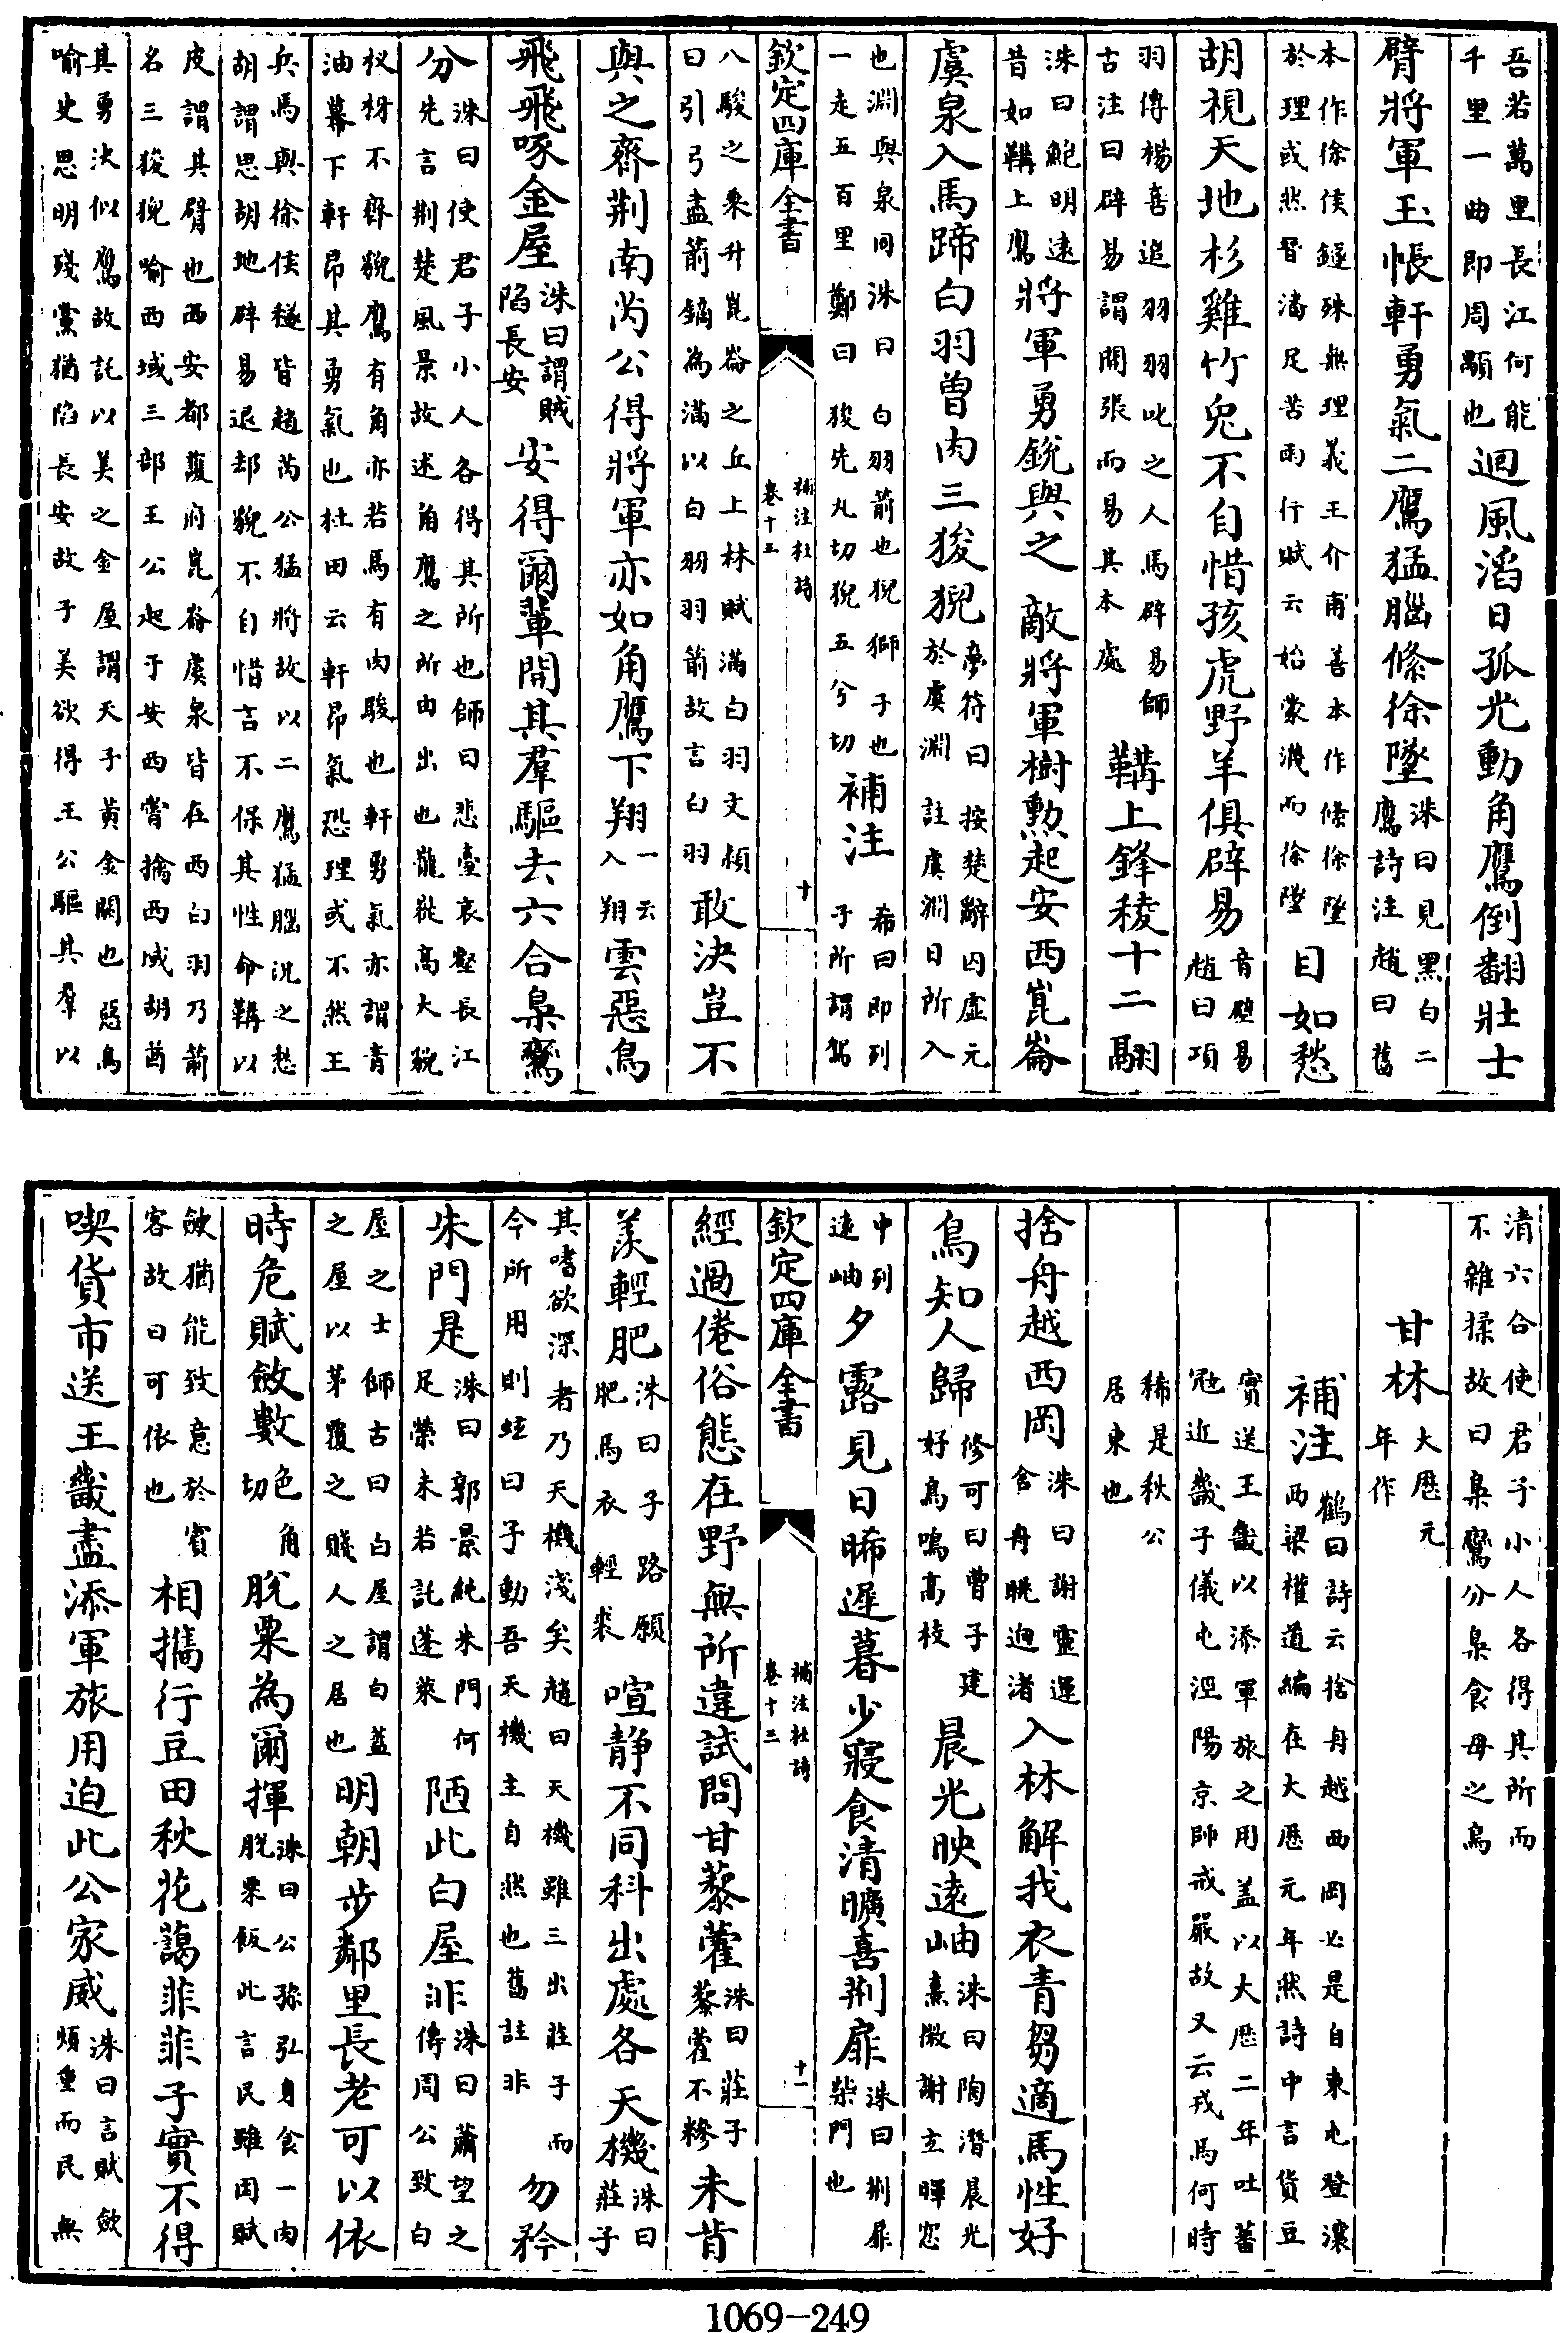 吾若萬里長江何能千里一曲即周顒也迴風滔日孤光動角鷹倒翻壯士
臂將軍玉帳軒勇氣二鷹猛腦絛徐墜洙曰見黑白二鷹詩注趙曰舊
本作徐侯鐩殊無理義王介甫善本作條徐墜於理或然晉潘尼苦雨行賦云始蒙瀎而徐墜目如愁
胡視天地杉雞竹兔不自惜孩虎野羊俱辟易音壁易趙曰項
羽傳楊喜追羽羽叱之人馬辟易師古注曰辟易謂開張而易其本處鞲上鋒稜十二翮
洙曰鮑明遠昔如鞲上鷹將軍勇銳與之敵將軍樹勲起安西崑崙
虞泉入馬蹄白羽曾肉三狻猊夢符曰按楚辭囚虛元於虞淵註虞淵日所入
也淵與泉同洙曰白羽箭也猊獅子也一走五百里鄭曰狻先丸切猊五兮切補注希曰即列子所謂駕
欽定四庫全書 補注杜詩 卷十三 十
八駿之乘升崑崙之丘上林賦滿白羽文頴曰引弓盡箭鏑為滿以白羽羽箭故言白羽敢決豈不
與之齊荆南芮公得將軍亦如角鷹下翔一云入翔雲惡鳥
飛飛啄金屋洙曰謂賊陷長安安得爾輩開其羣驅去六合梟鸞
分洙曰使君子小人各得其所也師曰悲臺哀壑長江先言荆楚風景故述角鷹之所由出也巃嵸高大貌
杈枒不齊貌鷹有角亦若馬有肉駿也軒勇氣亦謂青油幕下軒昂其勇氣也杜田云軒昂氣恐理或不然王
兵馬與徐侯鐩皆趙芮公猛將故以二鷹猛腦況之愁胡謂思胡地辟易退却貌不自惜言不保其性命鞲以
皮謂其臂也西安都䕶府崑崙虞泉皆在西白羽乃箭名三狻猊喻西域三部王公起于安西嘗擒西域胡酋
其勇決似鷹故託以美之金屋謂天子黄金闕也惡鳥喻史思明殘黨猶陷長安故子美欲得王公驅其羣以
清六合使君子小人各得其所而不雜揉故曰梟鸞分梟食母之鳥
甘林大厯元年作
補注鶴曰詩云捨舟越西岡必是自東屯登瀼西梁權道編在大厯元年然詩中言貨豆
實送王畿以添軍旅之用盖以大厯二年吐蕃冦近畿子儀屯涇陽京師戒嚴故又云戎馬何時
稀是秋公居東也
捨舟越西岡洙曰謝靈運舍舟眺迥渚入林解我衣青芻適馬性好
鳥知人歸修可曰曹子建好鳥鳴高枝晨光映遠岫洙曰陶潛晨光熹微謝玄暉窓
中列遠岫夕露見日晞遲暮少寢食清曠喜荆扉洙曰荆扉柴門也
欽定四庫全書 補注杜詩 卷十三 十一
經過倦俗態在野無所違試問甘藜藿洙曰莊子藜藿不糝未肯
羨輕肥洙曰子路願肥馬衣輕裘喧静不同科出處各天機洙曰莊子
其嗜欲深者乃天機淺矣趙曰天機雖三出莊子而今所用則蚿曰予動吾天機主自然也舊註非勿矜
朱門是洙曰郭景純朱門何足榮未若託蓬萊陋此白屋非洙曰蕭望之傳周公致白
屋之士師古曰白屋謂白葢之屋以茅覆之賤人之居也明朝步鄰里長老可以依
時危賦斂數色角切脫粟為爾揮洙曰公孫弘身食一肉脫粟飯此言民雖困賦
斂猶能致意於賓客故曰可依也相攜行豆田秋花藹菲菲子實不得
喫貨市送王畿盡添軍旅用迫此公家威洙曰言賦斂煩重而民無
1069-249